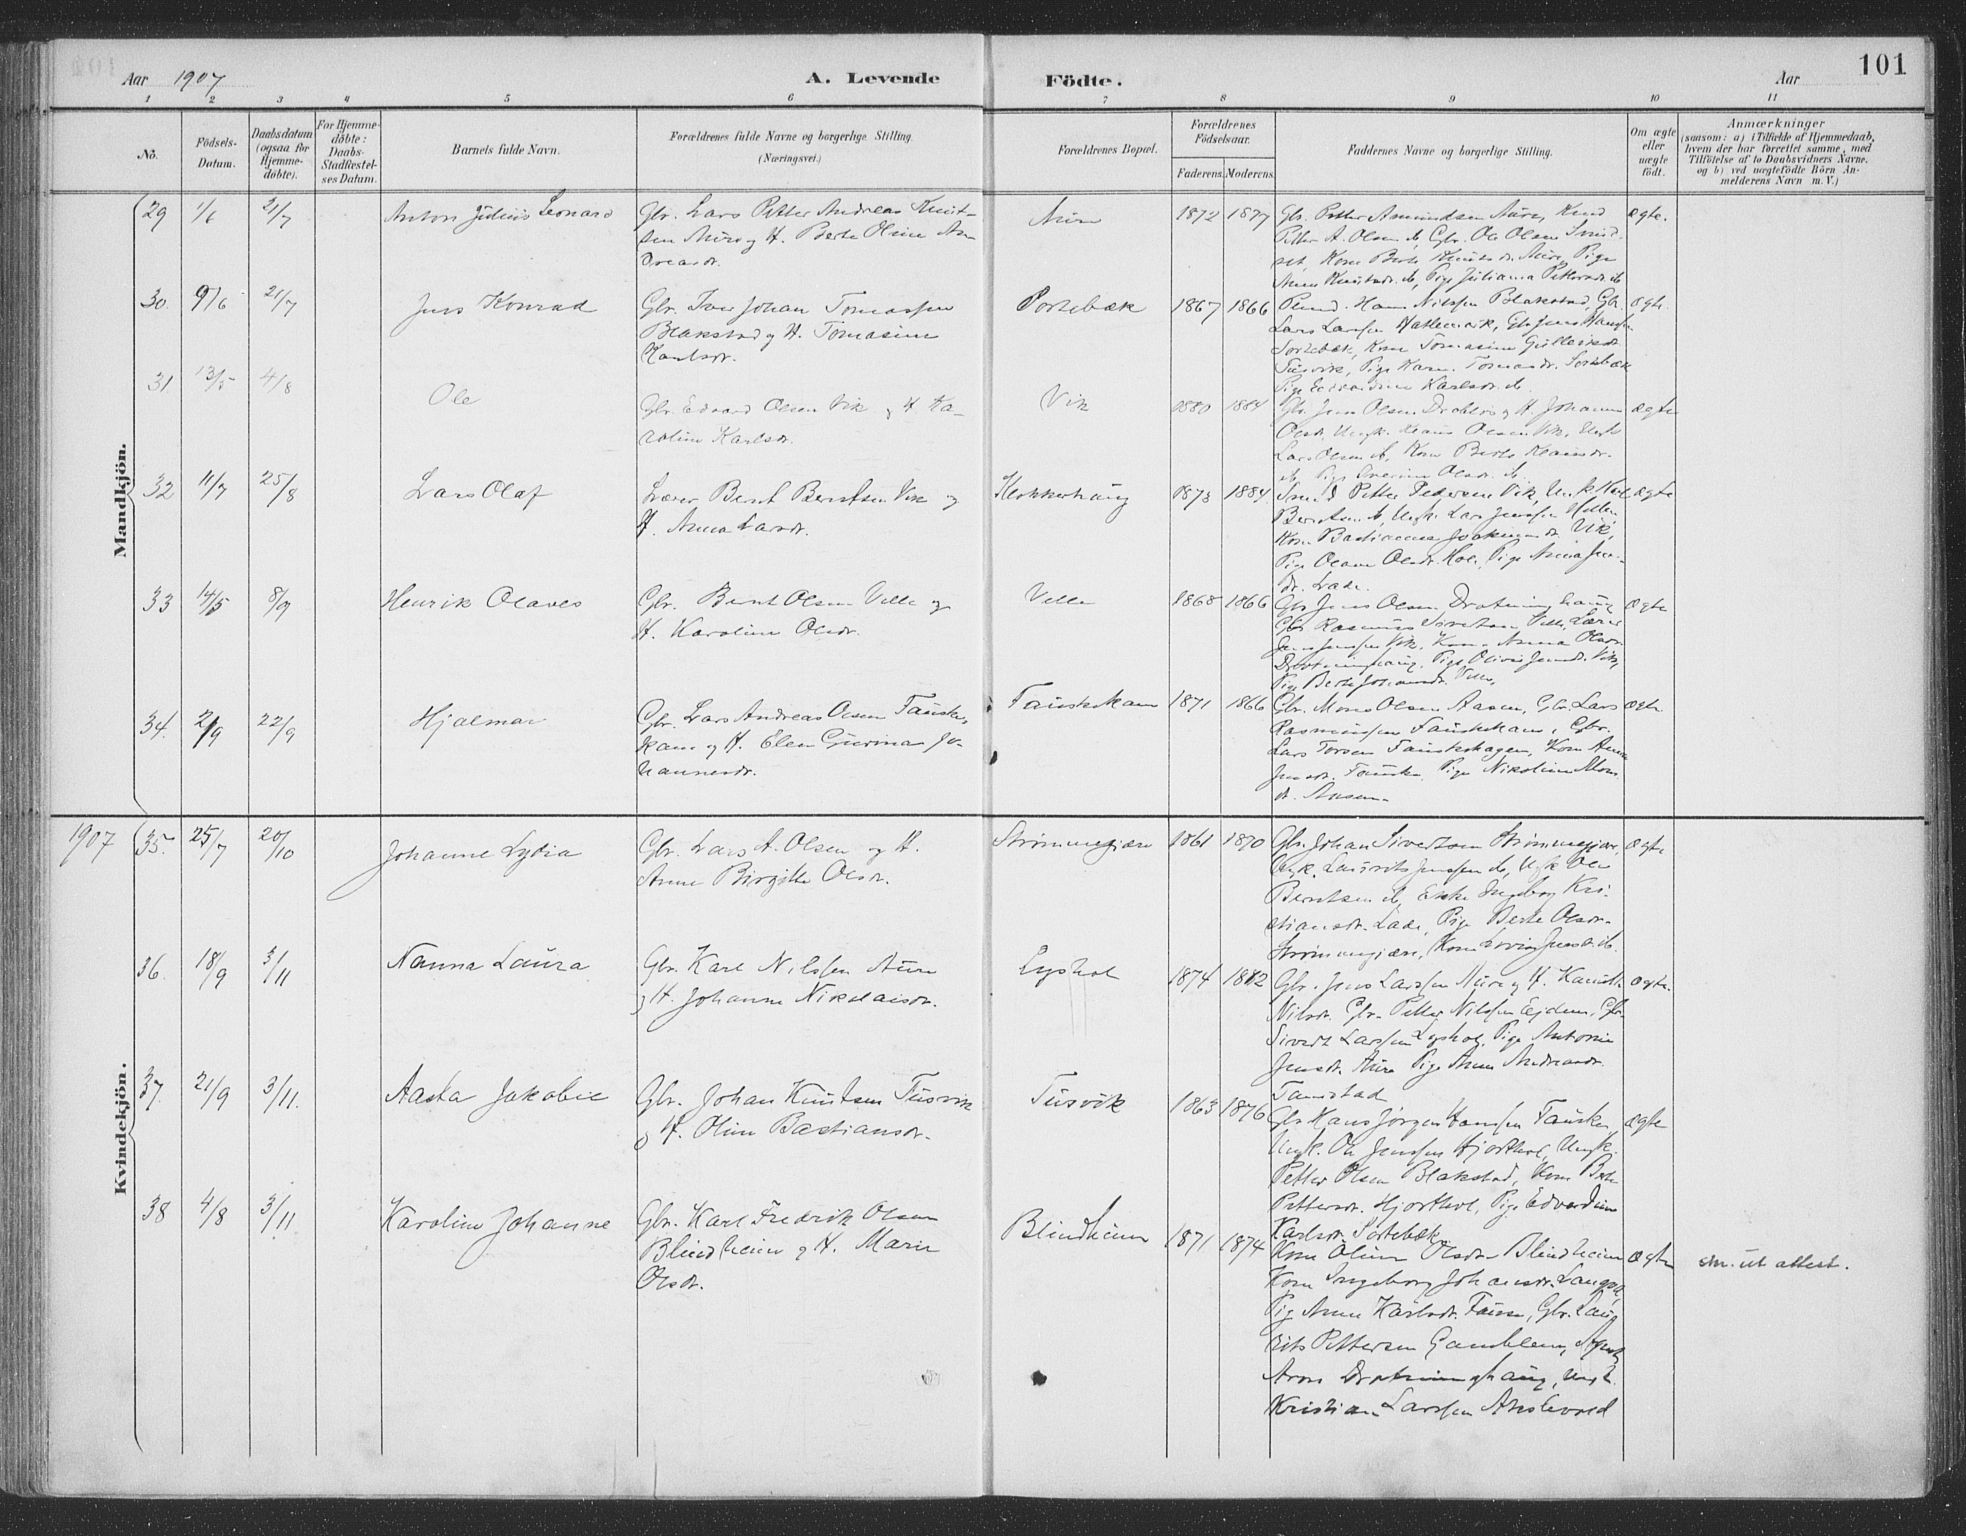 Aar 1907
A. Levende
Födte.
Aar
101
1 2 3 4 5 6 7 8 9 10 11
No.
Födsels-
Datum.
Daabsdatum
(ogsaa för
Hjemme-
döbte).
For Hjemme-
döbte:
Daabs-
Stadfæstel-
ses Datum.
Barnets fulde Navn.
Forældrenes fulde Navne og borgerlige Stilling.
(Næringsvei.)
Forældrenes Bopæl.
Forældrenes
Födselsaar.
Faderens. Moderens.
Faddernes Navne og borgerlige Stilling.
Om ægte
eller
uægte
födt.
Anmærkninger
(saasom: a) i Tilfælde af Hjemmedaab,
hvem der har forrettet samme, med
Tilföielse af to Daabsvidners Navne.
og b) ved uægtefödte Börn An-
melderens Navn m. V.)
Mandkjön.
29 1/6 21/7 Anton Julius Leonard
Gbr. Lars Petter Andreas Knut-
sen Aure og H. Berte Oline An-
dreasdr.
Aure
1872 1877
Gbr. Petter Amundsen Aure, Knud
Petter A. Olsen do, Gbr. Ole Olsen
Kone Berte Knutsdr. Aure, Pige
Anne Knutsdr. do, Pige Juliana Pettersdr. do
ægte.
30. 9/6 21/7 Jens Konrad
Gbr. Iver Johan Tomassen
Blakstad og H. Tomasine
Karlsdr.
Sortebæk
1867 1866
Hans Nilssen Blakstad, Gbr.
Lars Larssen Hatlemark, Gbr. Jens Hanssen
Sortebæk, Kone Tomasine
Tusvik, Pige Karen Tomasdr. Sortebæk
Pige Edvardine Karlsdr. do.
ægte.
31. 13/5 4/8 Ole
Gbr. Edvard Olsen Vik og H. Ka-
roline Karlsdr.
Vik
1880 1884
Gbr. Jens Olsen og H. Johanne
Olsdr. Ungk. Klaus Olsen Vik, Ungk.
Lars Olsen do, Kone Berte Klausdr.
do, Pige Severine Olsdr. do.
ægte
32 11/7 25/8 Lars Olaf
Lærer Bernt Berntsen Vik og
H. Anna Larsdr.
Klokkerhaug
1873 1884
Petter Pedersen Vik, Ungk. Karl
Berntsen do, Ungk. Lars Jenssen
Kone Bastianna Joakimsdr. Vik,
Pige Olave Olsdr. Hole, Pige Anna Jens-
dr. Lade.
ægte
33 14/5 8/9 Henrik Olaves
Gbr. Bernt Olsen Velle og
H. Karoline Olsdr.
Velle
1868 1866
Gbr. Jens Olsen Drotninghaug
Gbr. Rasmus Sivertsen Velle, Lærer
Jens Jenssen Vik, Kone Anna Olsdr.
Drotninghaug, Pige Olivie Jensdr. Vik,
Pige Berte Johansdr. Velle.
ægte
34. 2/9 22/9 Hjalmar
Gbr. Lars Andreas Olsen Fauske-
kam og H. Elen Gurina Jo-
hannesdr.
Fauskekam
1871 1866
Gbr. Mons Olsen Aasen, Gbr. Lars
Rasmussen Fauskekam, Gbr.
Lars Torsen Fauskehagen, Kone Anne
Jensdr. Fauske, Pige Nikoline Mons-
dr. Aasen.
ægte
Kvindekjön.
1907
35. 25/7 20/10 Johanne Lydia
Gbr. Lars A. Olsen og H.
Anne Birgitte Olsdr.
Strømmegjære
1861 1870
Gbr. Johan Sivertsen Strømmegjære,
Ungk. Laurits Jenssen do, Ungk. Ole
Berntsen do, Enke Ingeborg Kri-
stiansdr. Lade, Pige Berte Olsdr.
Strømmegjære, Kone Lovise Jensdr. do.
ægte
36. 18/9 3/11 Nanna Laura
Gbr. Karl Nilssen Aure
og H. Johanne Nikolaisdr.
Lyshol
1874 1882
Gbr. Jens Larssen Aure og H.
Nilsdr. Gbr. Petter Nilssen Eidem, Gbr.
Sivert Larssen Lyshol, Pige Antonie
Jensdr. Aure Pige Anne Andreasdr.
Tamstad
ægte.
37. 21/9 3/11. Aasta Jakobie
Gbr. Johan Knutsen Tusvik
og H. Oline Bastiansdr.
Tusvik
1863 1876
Gbr. Hans Jørgen Hanssen Fauske,
Ungk. Ole Jenssen Hjorthol, Ungk.
Petter Olsen Blakstad, Kone Berte
Pettersdr. Hjorthol, Pige Edvardine
Karlsdr. Sortebæk
ægte
38 4/8 3/11 Karoline Johanne
Gbr. Karl Fredrik Olsen
Blindheim og H. Marie
Olsdr.
Blindheim
1871 1874
Kone Oline Olsdr. Blindheim
Kone Ingeborg Johansdr.
Pige Anne Karlsdr. Gbr. Lau-
rits Pettersen Gamblem,
Arne Drotninghaug, Ungk.
Kristian Larssen
ægte
utattest.